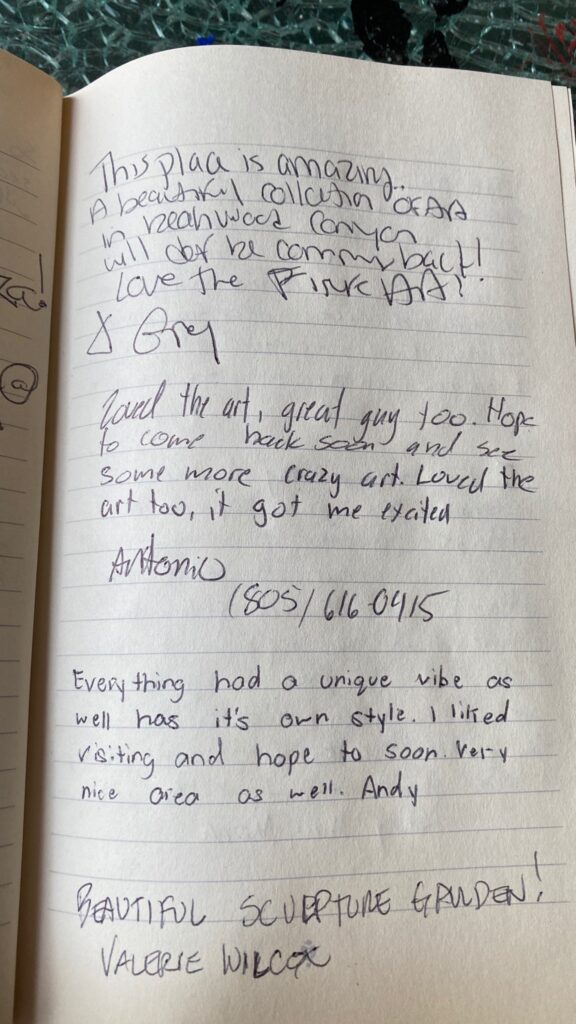 This place is amazing..
A beautiful collection of Art
in Beahwood Canyon
will def be comming back!
Love the Art!
Loved the art, great guy too. Hope
to come back soon and see
some more crazy art. Loved the
art too, it got me excited
Antonio
(805) 616 0415
Everything had a unique vibe as
well has it's own style. I liked
visiting and hope to soon. Very
nice area as well. Andy
BEAUTIFUL SCULPTURE GARDEN!
VALERIE WILCOX
@